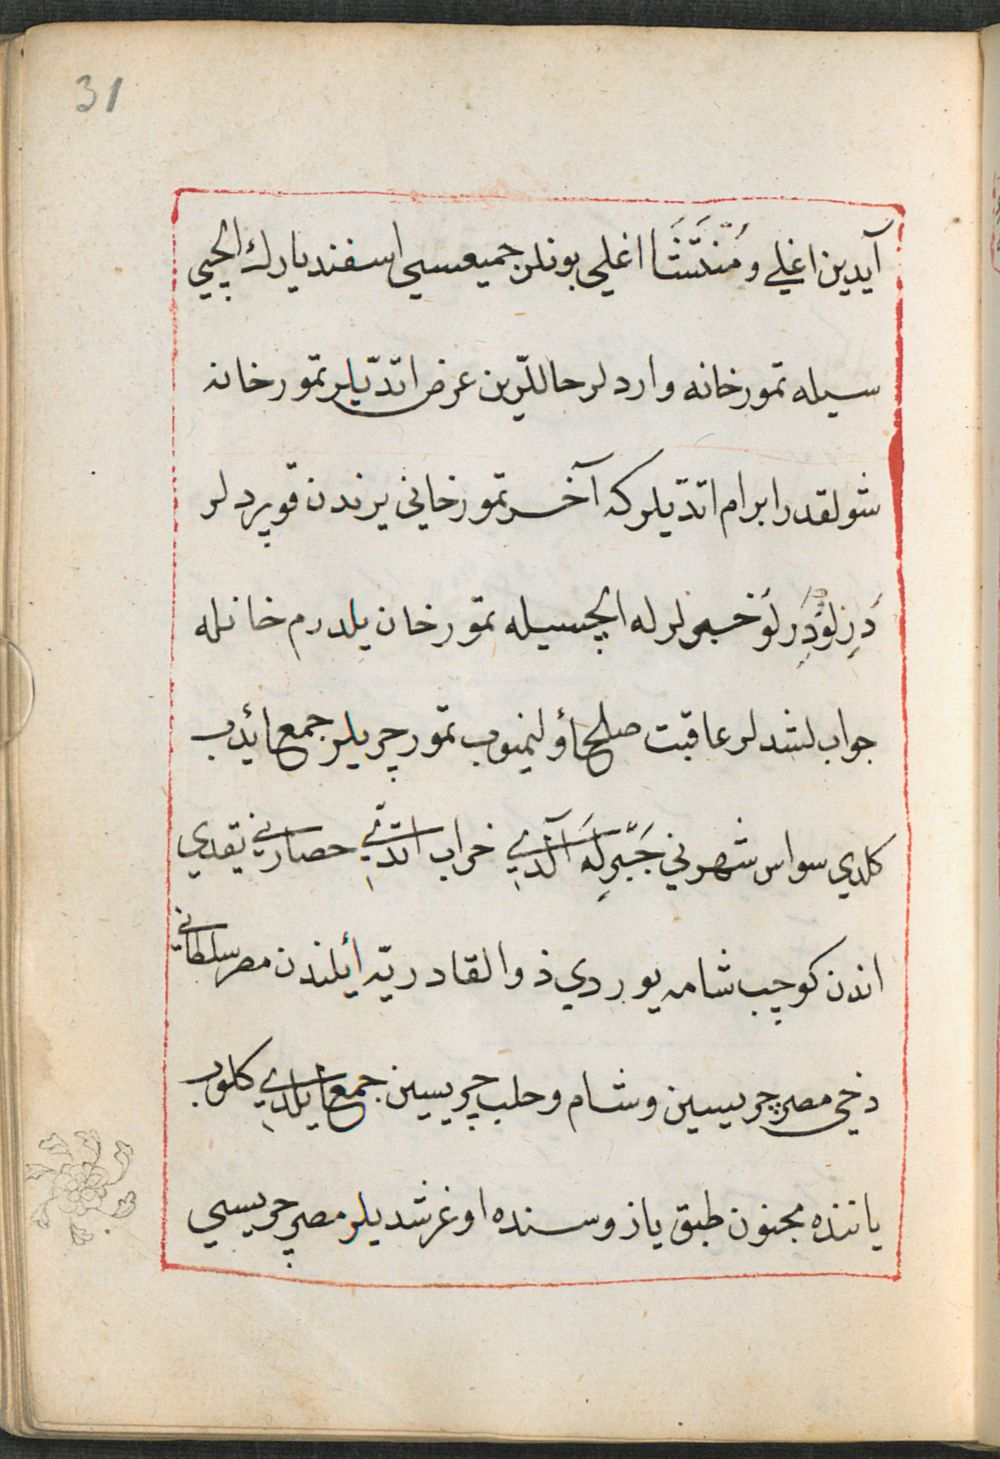 31
آيدين اغلي و مَنْتَشَا اغلي بونلر جميعسي اسفنديارك ايلچي
سيله تمورخانه وارد لر حاللرين عرض اتدّيلر تمورخانه
شولقدر ابرام اتدّيلر كه آخر تمورخاني يرندن قوپرد لر
دَرِزلَو دَرِلَو خبرلرله ايلچسيله تمورخان يلدرم خانله
جواب لشدلر عاقبت صلح اؤلنميوب تمور چريلر جمع ائدب
كلدي سواس شهرني جَبْرِلَه آلدي خراب اتدّي حصارني يقدي
اندن كوچب شامه يوردي ذوالقادريّه أيلندن مصر سلطاني
دخي مصر چريسين وشام وحلب چريسين جمع ايلدي كلوب
ياننده مجنون طبق يازوسنده اوغرشديلر مصر چريسي